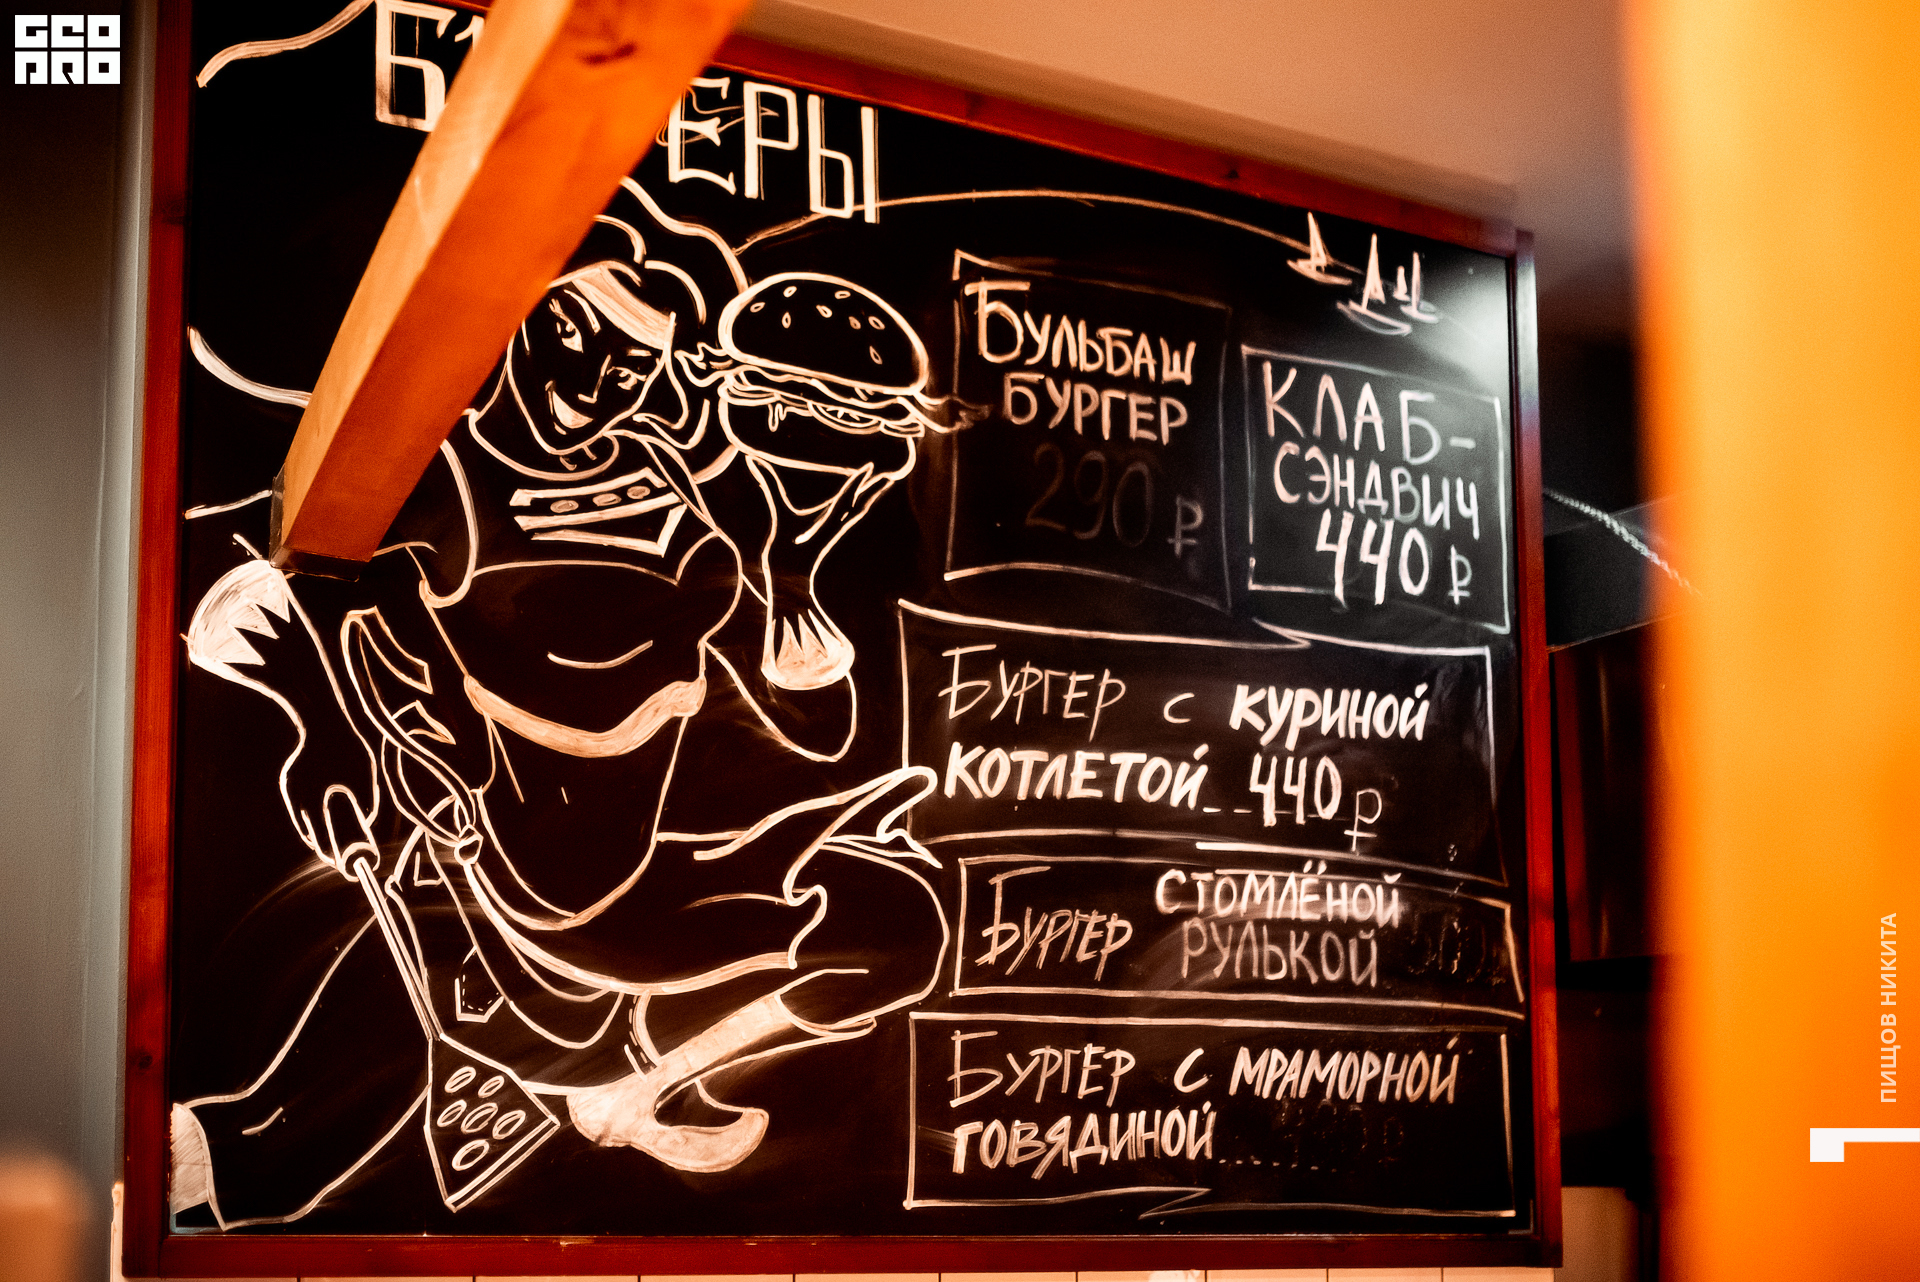 GEO
PRO
ЕРЫ
БУЛЬБАШ
БУРГЕР
290 ₽
КЛАБ-
СЭНДВИЧ
440 ₽
БУРГЕР С КУРИНОЙ
КОТЛЕТОЙ 440 ₽
БУРГЕР СТОМЛЁНОЙ
РУЛЬКОЙ
БУРГЕР С МРАМОРНОЙ
ГОВЯДИНОЙ
ПИЩОВ НИКИТА